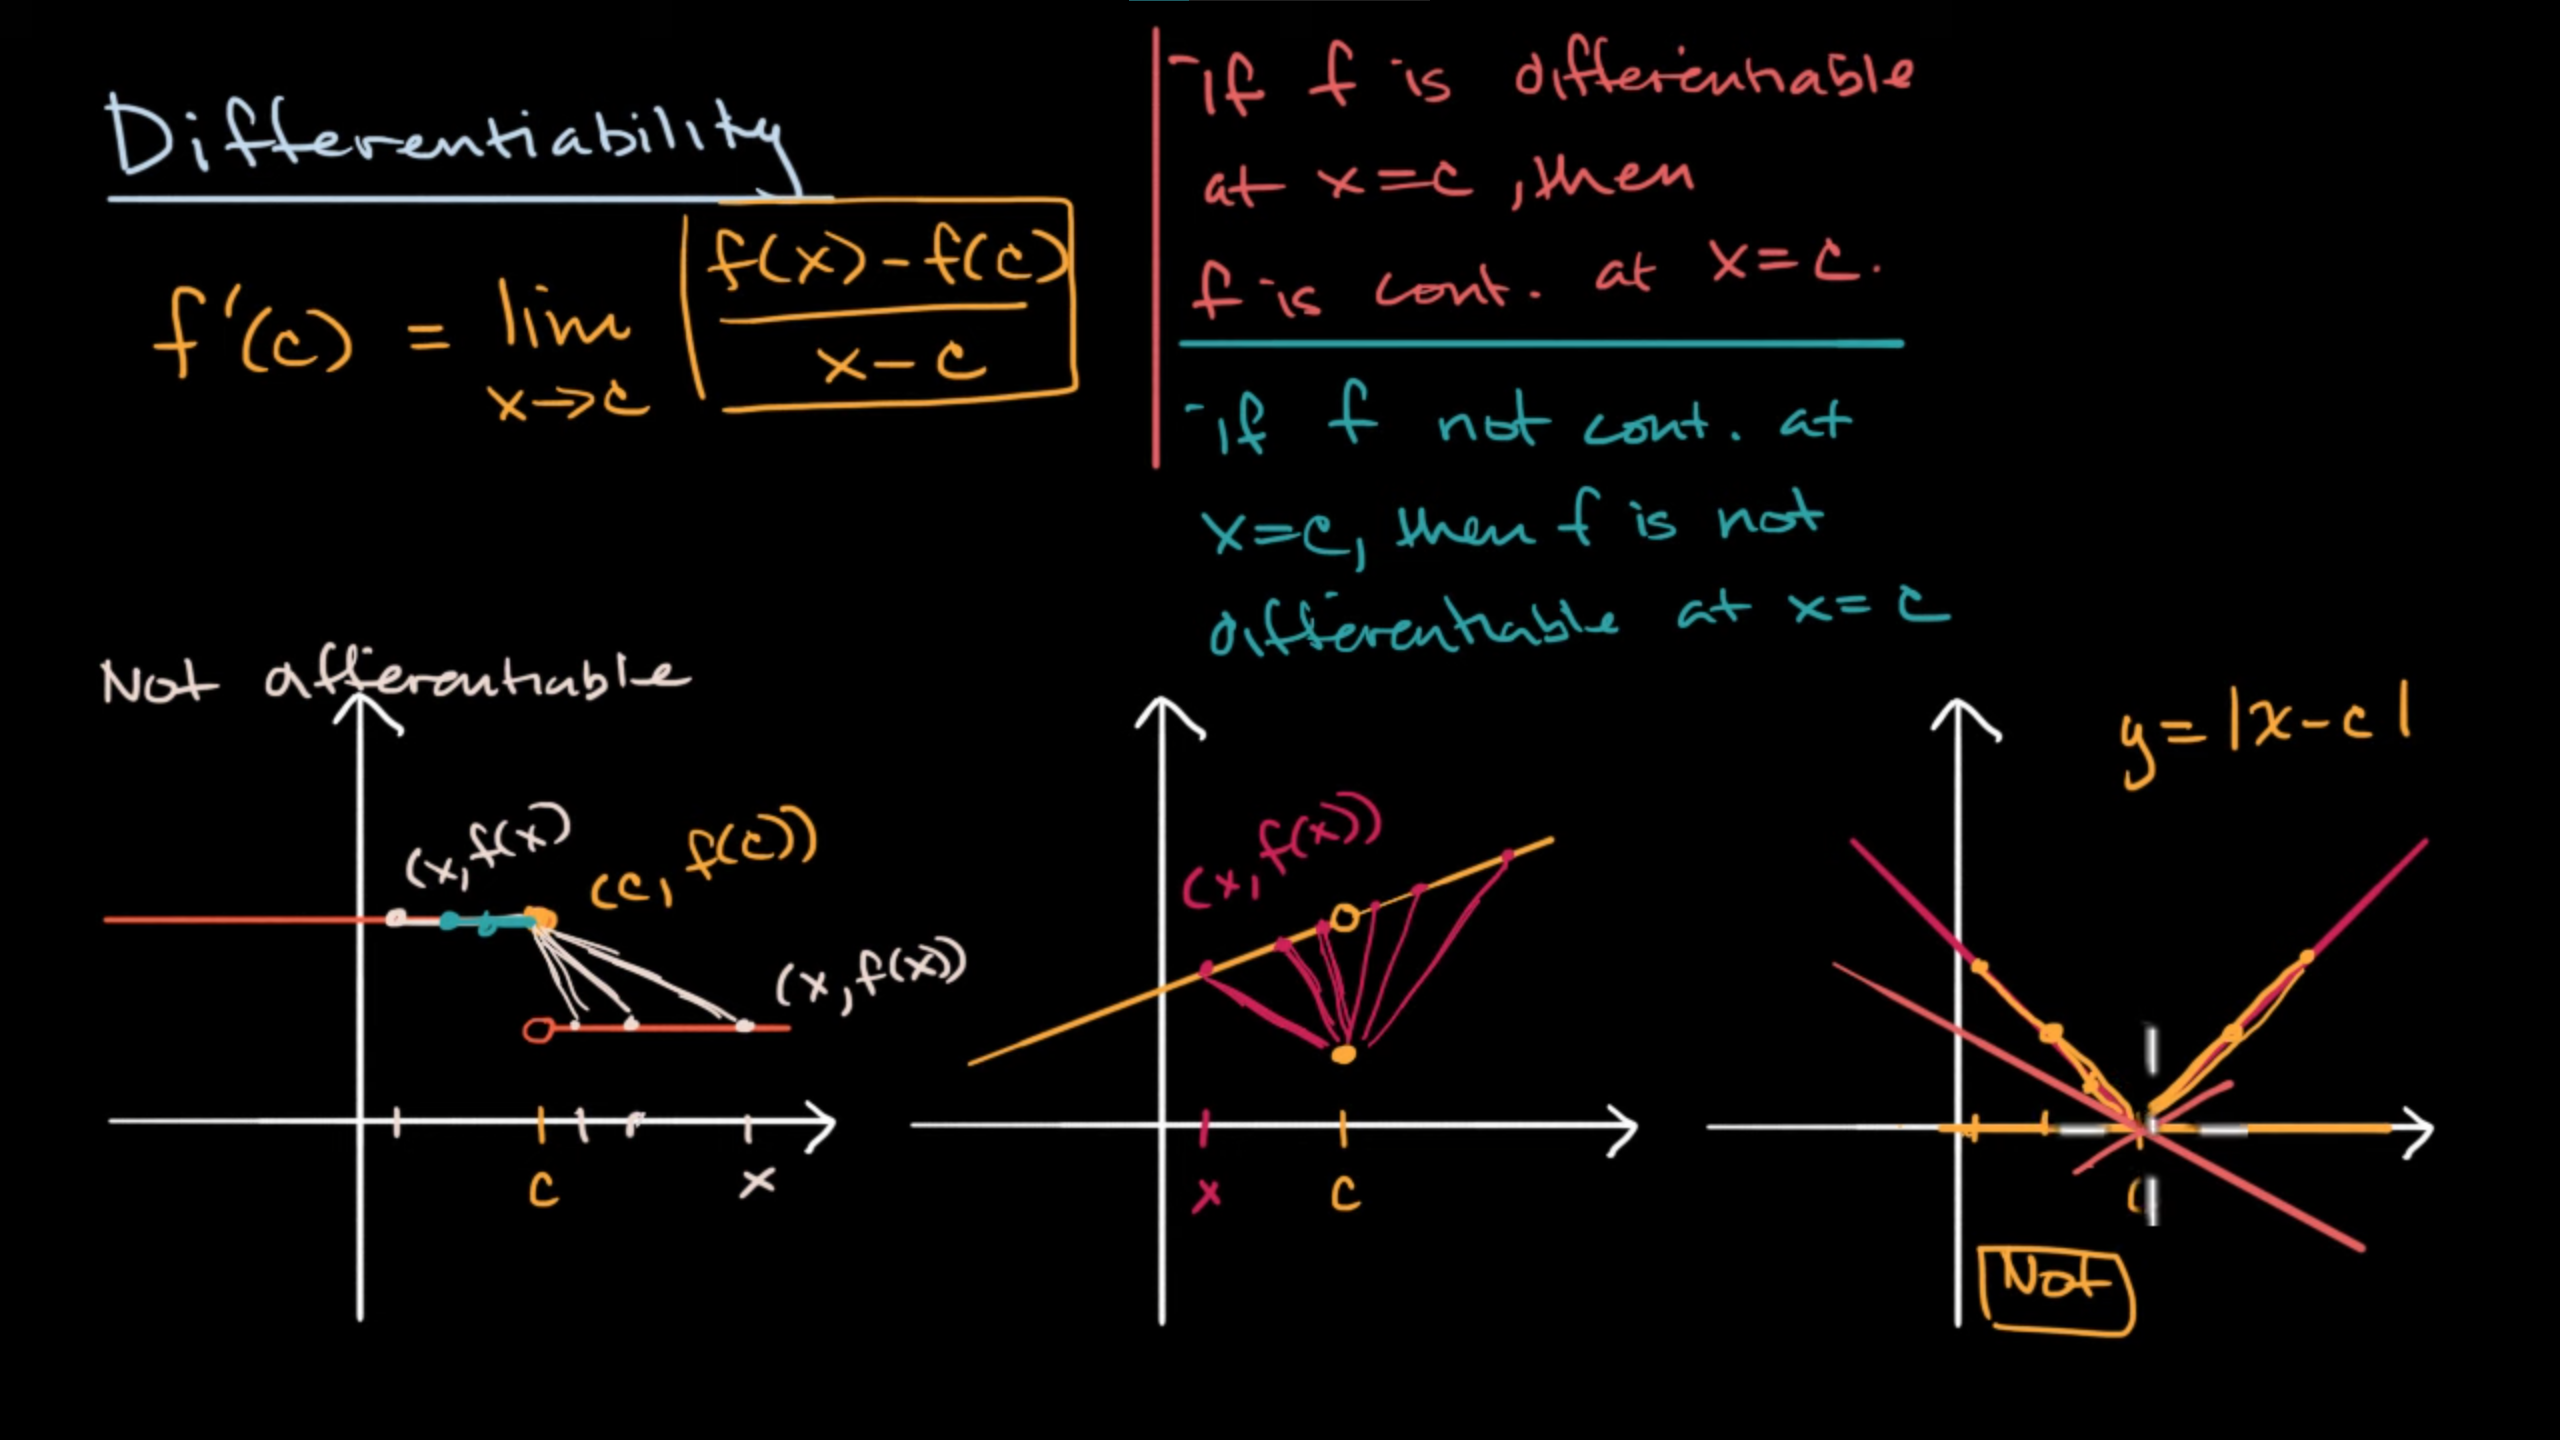 Differentiability
f'(c) = lim x→c f(x) - f(c) / x - c
- if f is differentiable
at x = c, then
f is cont. at x = c.
- if f not cont. at
x = c, then f is not
differentiable at x = c
Not differentiable
(x, f(x)
(c, f(c))
(x, f(x))
c
x
(x, f(x))
x
c
y = |x - c|
c
Not